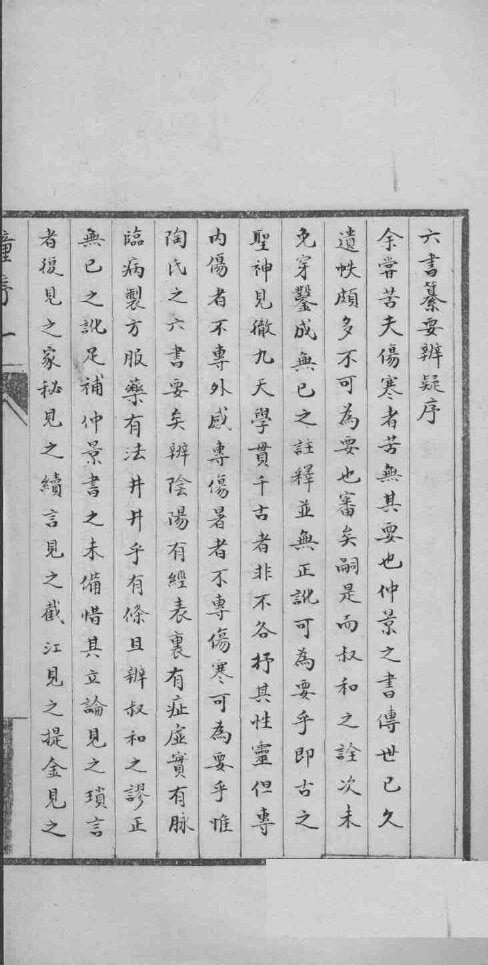 六書纂要辨疑序
余嘗苦夫傷寒者苦無其要也仲景之書傳世已久
遺帙頗多不可為要也審矣嗣是而叔和之詮次未
免穿鑿成無已之註釋並無正訛可為要乎即古之
聖神見徹九天學貫千古者非不各抒其性靈但專
內傷者不專外感專傷暑者不專傷寒可為要乎惟
陶氏之六書要矣辨陰陽有經表裏有症虛實有脉
臨病製方服藥有法井井乎有條且辨叔和之謬正
無已之訛足補仲景書之未備惜其立論見之瑣言
者復見之家秘見之續言見之截江見之提金見之
序一